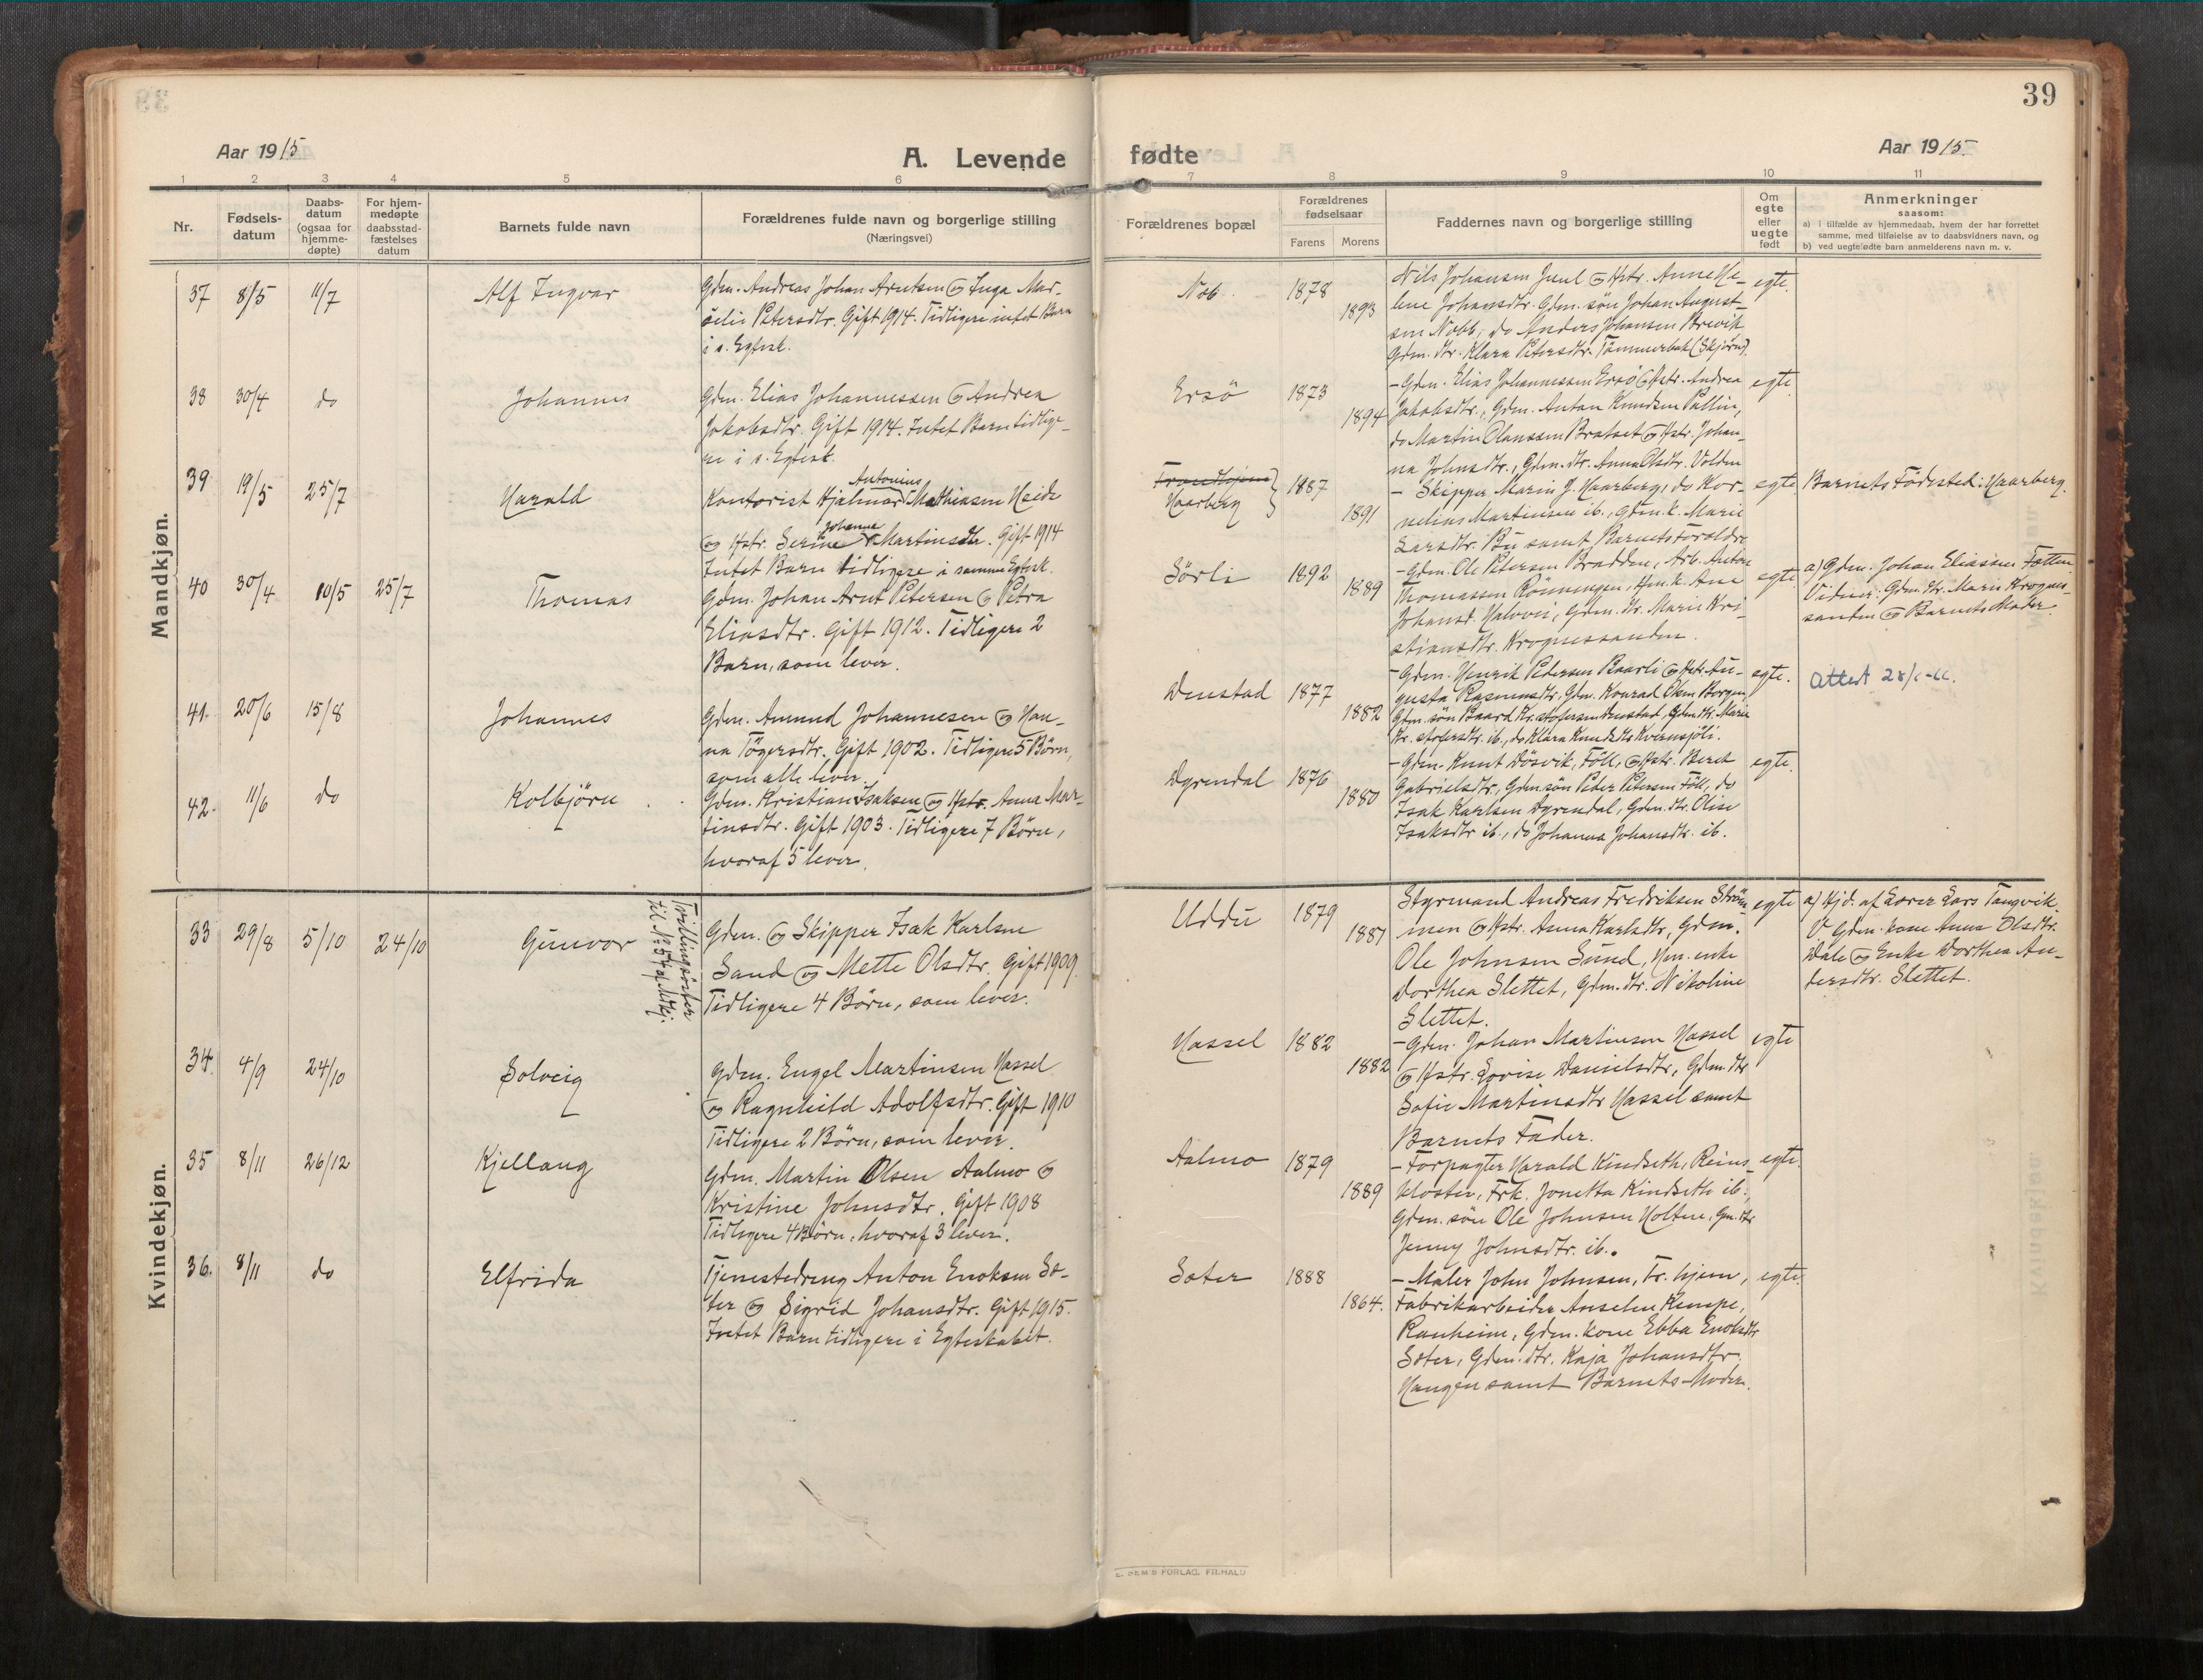 39
Aar 1915
A. Levende fødte
Aar 1915
1 2 3 4 5 6 7 8 9 10 11
Nr.
Fødsels-
datum
Daabs-
datum
(ogsaa for
hjemme-
døpte)
For hjem-
medøpte
daabsstad-
fæstelses
datum
Barnets fulde navn
Forældrenes fulde navn og borgerlige stilling
(Næringsvei)
Forældrenes bopæl
Forældrenes
fødselsaar
Farens Morens
Faddernes navn og borgerlige stilling
Om
egte
eller
uegte
født
Anmerkninger
saasom:
a) i tilfælde av hjemmedaab, hvem der har forrettet
samme, med tilføielse av to daabsvidners navn, og
b) ved uegtefødte barn anmelderens navn m. v.
Mandkjøn.
37 8/5 11/7 Alf Ingvar
Gdm. Andreas Johan Arntsen og Inga Mar-
selie Petersdtr. Gift 1914. Tidligere intet Barn
i s. Egtesk.
1878 1893
Nils Johansen Juul og Hstr. Anne He-
lene Johansdtr. Gdm. søn Johan August-
sen Nebb, do Anders Johansen Brevik
Gdm. dtr. Klara Petersdtr.
egte.
38 30/4 do Johannes
Gdm. Elias Johannessen og Andrea
Jakobsdtr. Gift 1914. Intet Barn tidlige-
re i s. Egtesk.
Ersö 1873 1894
- Gdm. Elias Johannessen Ersö og Hstr. Andrea
Jakobsdtr., Gdm. Anton Knudsen Pallin,
do Martin Olaussen Bratset og Hstr. Johan-
na Johnsdtr., Gdm. dtr. Anna Olsdtr. Volden
egte
39 19/5 25/7 Harald
Antonius
Kontorist Hjalmar Mathiasen Heide
Johanna
og Hstr. Serine Martinsdtr. Gift 1914
Intet Barn tidligere i samme Egtesk.
Trondhjem
Haarberg
1887 1891
- Skipper Marin J. Haarberg, do Kor-
nelius Martinsen ib., Gdm. k. Marie
Larsdtr. Bu samt Barnets Foraldre
egte
Barnets Fødested: Haarberg.
40 30/4 10/5 25/7 Thomas
Gdm. Johan Arnt Petersen og Petra
Eliasdtr. Gift 1912. Tidligere 2
Barn, som lever.
Sörli 1892 1889
- Gdm. Ole Petersen Bradden, Arb. Anton
Thomassen Rönningen, Hm. k. Ane
Johansd. Halvei, Gdm. dtr. Marie Kri-
stiansdtr. Krognessanden.
egte
a) Gdm. Johan Eliassen Fætten
Vidner: Gdm. dtr. Marie Krognes-
sanden og Barnets Moder.
41. 20/6 15/8 Johannes
Gdm. Amund Johannesen og Han-
na Tögersdtr. Gift 1902. Tidligere 5 Börn,
som alle lever.
Denstad 1877 1882
- Gdm. Henrik Pedersen Baarli og Hstr. Au-
gusta Rasmusdtr, Gdm. Konrad Olsen Borgen,
Gdm. søn Baard Kristofersen Denstad, Gdm. dtr. Marie
Kristofersdtr. ib., do Klara Knudsdtr Kvernsjöli.
egte.
Attest
42. 11/6 do Kolbjörn
Gdm. Kristian Isaksen og Hstr. Anna Mar-
tinsdtr. Gift 1903. Tidligere 7 Börn,
hvoraf 5 lever.
Dyrendal 1876 1880
- Gdm. Knut Døsvik, Föll, og Hstr. Beret
Gabrielsdtr., Gdm. søn Peder Petersen Föll, do
Isak Karlsen Dyrendal, Gdm. dtr. Olise
Isaksdtr ib., do Johanna Johansdtr. ib.
egte.
Kvindekjøn.
33 29/8 5/10 24/10 Gunvor
Tvillingsöster
til № 54 af Mkj.
Gdm. og Skipper Isak Karlsen
Sand og Mette Olsdtr. Gift 1909.
Tidligere 4 Börn, som lever.
Uddu 1879 1887
Styrmand Andreas Fredriksen Ström-
men og Hstr. Anna Karlsdtr, Gdm.
Ole Johnsen Sund, Hm. enke
Dorthea Slettet, Gdm. dtr. Nikoline
Slettet.
egte
a) Hjd. af Lærer Lars Tangvik.
V. Gdm. kone Anna Olsdtr.
Dale og Enke Dorthea An-
dersdtr. Slettet.
34. 4/9 24/10 Solveig
Gdm. Engel Martinsen Hassel
og Ragnhild Adolfsdtr. Gift 1910
Tidligere 2 Börn, som lever.
Hassel 1882 1882
- Gdm. Johan Martinsen Hassel
og Hstr. Lovise Danielsdtr, Gdm. dtr
Sofie Martinsdtr Hassel samt
Barnets Fader.
egte
35 8/11 26/12 Kjellaug
Gdm. Martin Olsen Aalmo og
Kristine Johnsdtr. Gift 1908
Tidligere 4 Börn, hvoraf 3 lever.
Aalmo 1879 1889
- Forpagter Harald Kindseth, Reins-
kloster, Frk. Jonetta Kindseth ib.,
Gdm. søn Ole Johnsen Holten, Gm. dtr
Jenny Johnsdtr. ib.
egte.
36. 8/11 do Elfrida
Tjenestedreng Anton Enoksen Sæ-
ter og Sigrid Johansdtr. Gift 1915.
Intet Barn tidligere i Egteskabet.
Sæter 1888 1864.
- Maler John Johnsen, Tr. hjem,
Fabrikarbeider Anselm Kempe,
Ranheim, Gdm. kone Ebba Enoksdtr
Sæter, Gdm. dtr. Kaja Johansdtr.
Haugen samt Barnets Moder.
egte
E. SEM'S FORLAG, FR.HALD